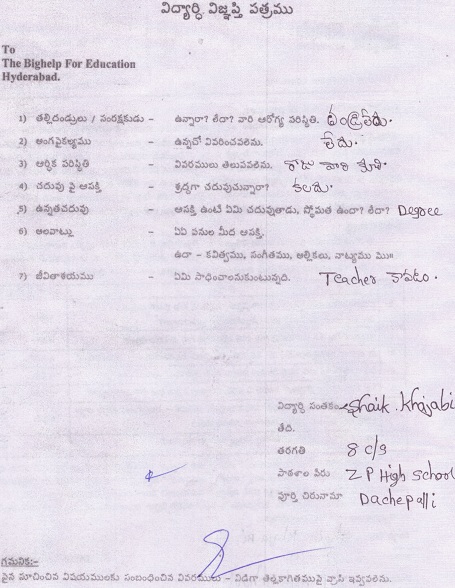 విద్యార్ధి విజ్ఞప్తి పత్రము
To
The Bighelp For Education
Hyderabad.
1) తల్లిదండ్రులు / సంరక్షకుడు - ఉన్నారా? లేదా? వారి ఆరోగ్య పరిస్థితి. తండ్రిలేడు.
2) అంగవైకల్యము - ఉన్నచో వివరించవలెను. లేదు.
3) ఆర్ధిక పరిస్థితి - వివరములు తెలుపవలెను. రోజు వారి కూలి
4) చదువు పై ఆసక్తి - శ్రద్ధగా చదువుచున్నారా? కలదు.
5) ఉన్నతచదువు - ఆసక్తి ఉంటే ఏమి చదువుతాడు, స్థోమత ఉందా? లేదా? Degree
6) అలవాట్లు - ఏఏ పనుల మీద ఆసక్తి.
ఉదా - కవిత్వము, సంగీతము, అల్లికలు, నాట్యము ము॥
7) జీవితాశయము - ఏమి సాధించాలనుకుంటున్నది. Teacher కావడం.
విద్యార్ధి సంతకం Shaik. Khajabi
తేది.
తరగతి 8 c/s
పాఠశాల పేరు Z P High School
పూర్తి చిరునామా Dachepalli
గమనిక:-
పైన సూచించిన విషయములకు సంబంధించిన వివరములు - విడిగా తెల్లకాగితముపై వ్రాసి ఇవ్వవలెను.